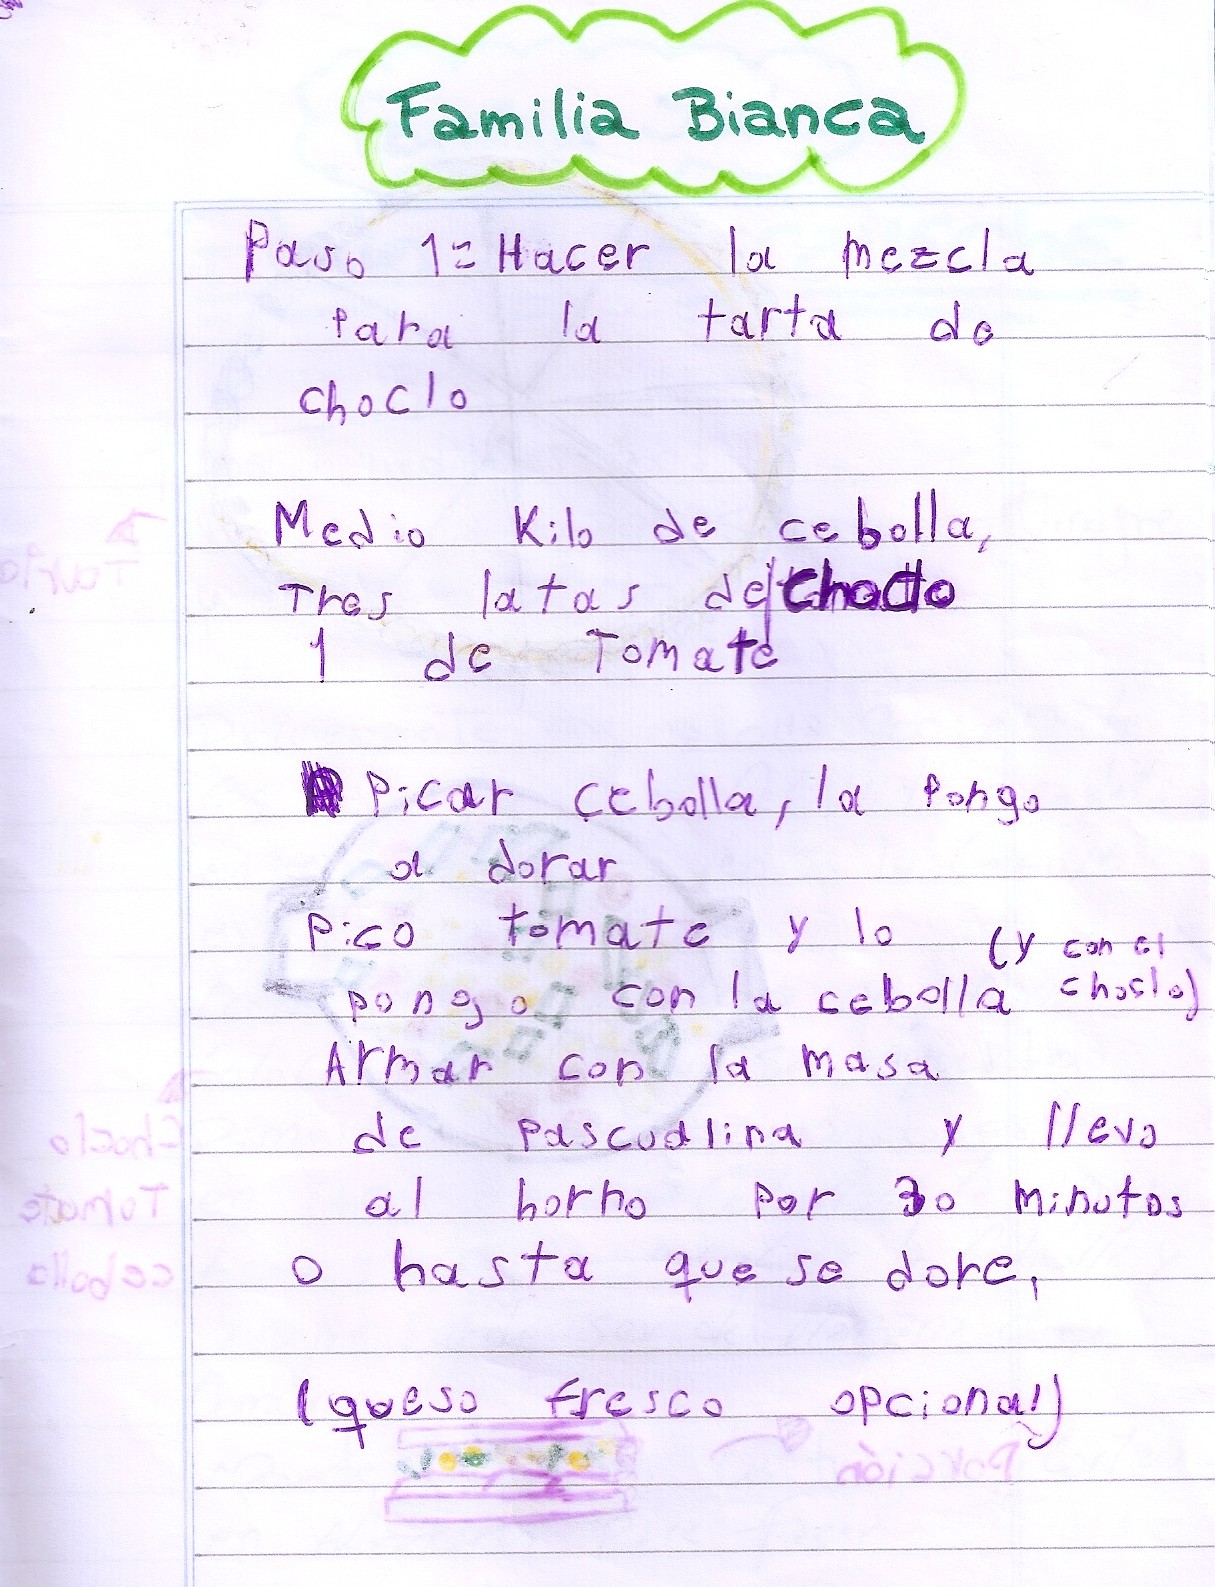 Familia Bianca
Paso 1= Hacer la mezcla
para la tarta de
choclo
Medio Kilo de cebolla,
Tres latas de choclo
1 de Tomate
Picar cebolla, la pongo
a dorar
Pico tomate y lo (y con el
pongo con la cebolla choclo)
Armar con la masa
de pascualina y llevo
al horno por 30 minutos
o hasta que se dore,
(queso fresco opcional)
Tarta
Choclo
Tomate
cebolla
porción